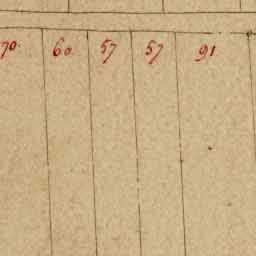 70 60 57 57 91